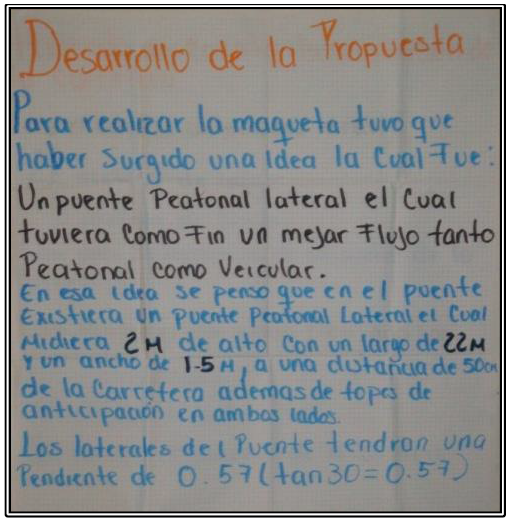 Desarrollo de la Propuesta
Para realizar la maqueta tuvo que
haber surgido una idea la cual Fue:
Un puente Peatonal lateral el Cual
tuviera Como Fin un mejar Flujo tanto
Peatonal como Veicular.
En esa idea se penso que en el puente
Existiera Un puente Peatonal Lateral el Cual
Midiera 2M de alto Con un largo de 22M
Y un ancho de 1.5 M, a una distancia de 50cm
de la Carretera ademas de topes de
anticipación en ambos lados.
Los laterales del Puente tendran una
Pendiente de 0.57 (tan30=0.57)